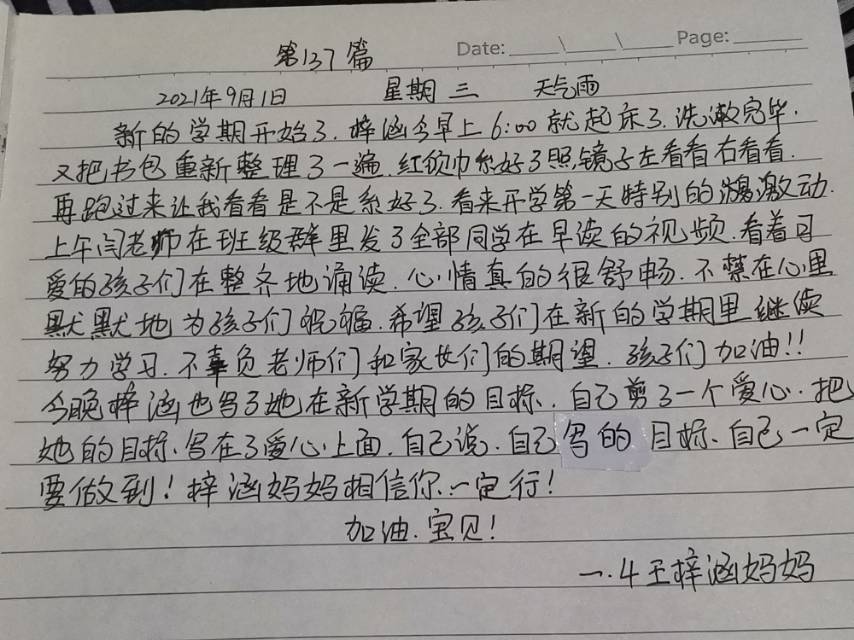 第137篇
Date:____\____\____ Page:______
2021年9月1日 星期三 天气雨
新的学期开始了.梓涵今早上6:00就起床了.洗漱完毕.
又把书包重新整理了一遍.红领巾系好了照镜子左看看右看看.
再跑过来让我看看是不是系好了.看来开学第一天特别的激动.
上午闫老师在班级群里发了全部同学在早读的视频.看着可
爱的孩子们在整齐地诵读.心情真的很舒畅.不禁在心里
默默地为孩子们祝福.希望孩子们在新的学期里继续
努力学习.不辜负老师们和家长们的期望.孩子们加油!!
今晚梓涵也写了她在新学期的目标.自己剪了一个爱心.把
她的目标.写在了爱心上面.自己说.自己写的目标.自己一定
要做到!梓涵妈妈相信你.一定行!
加油.宝贝!
一.4王梓涵妈妈